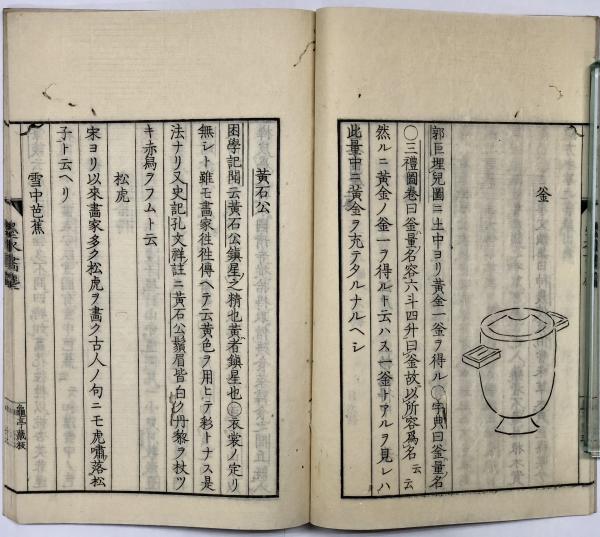 釜
郭巨埋兒圖ニ土中ヨリ黃金一釜ヲ得ル〇字典曰釜量名
〇三禮圖卷曰釜量名容六斗四升曰釜故以所容爲名云云
然ルニ黃金ノ釜一ヲ得ルト云ハス一釜トアルヲ見レハ
此量中ニ黃金ヲ充テタルナルヘシ
黃石公
困學記聞云黃石公鎮星之精也黃者鎮星也〇衣裳ノ定リ
無シト雖モ畫家徃徃傳ヘテ云黃色ヲ用ヒテ彩トナス是
法ナリ又史記孔文祥註ニ黃石公鬚眉皆白ク丹黎ヲ杖ツ
キ赤舄ヲフムト云
松虎
宋ヨリ以來畫家多ク松虎ヲ畫ク古人ノ句ニモ虎嘯落松
子ト云ヘリ
雪中芭蕉
龜亭藏板